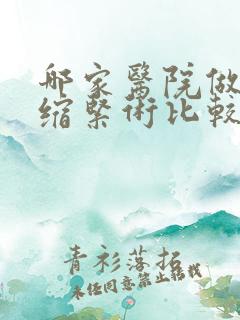 哪家醫院做
縮緊術比較
青衫落拓
未经同意禁止转载